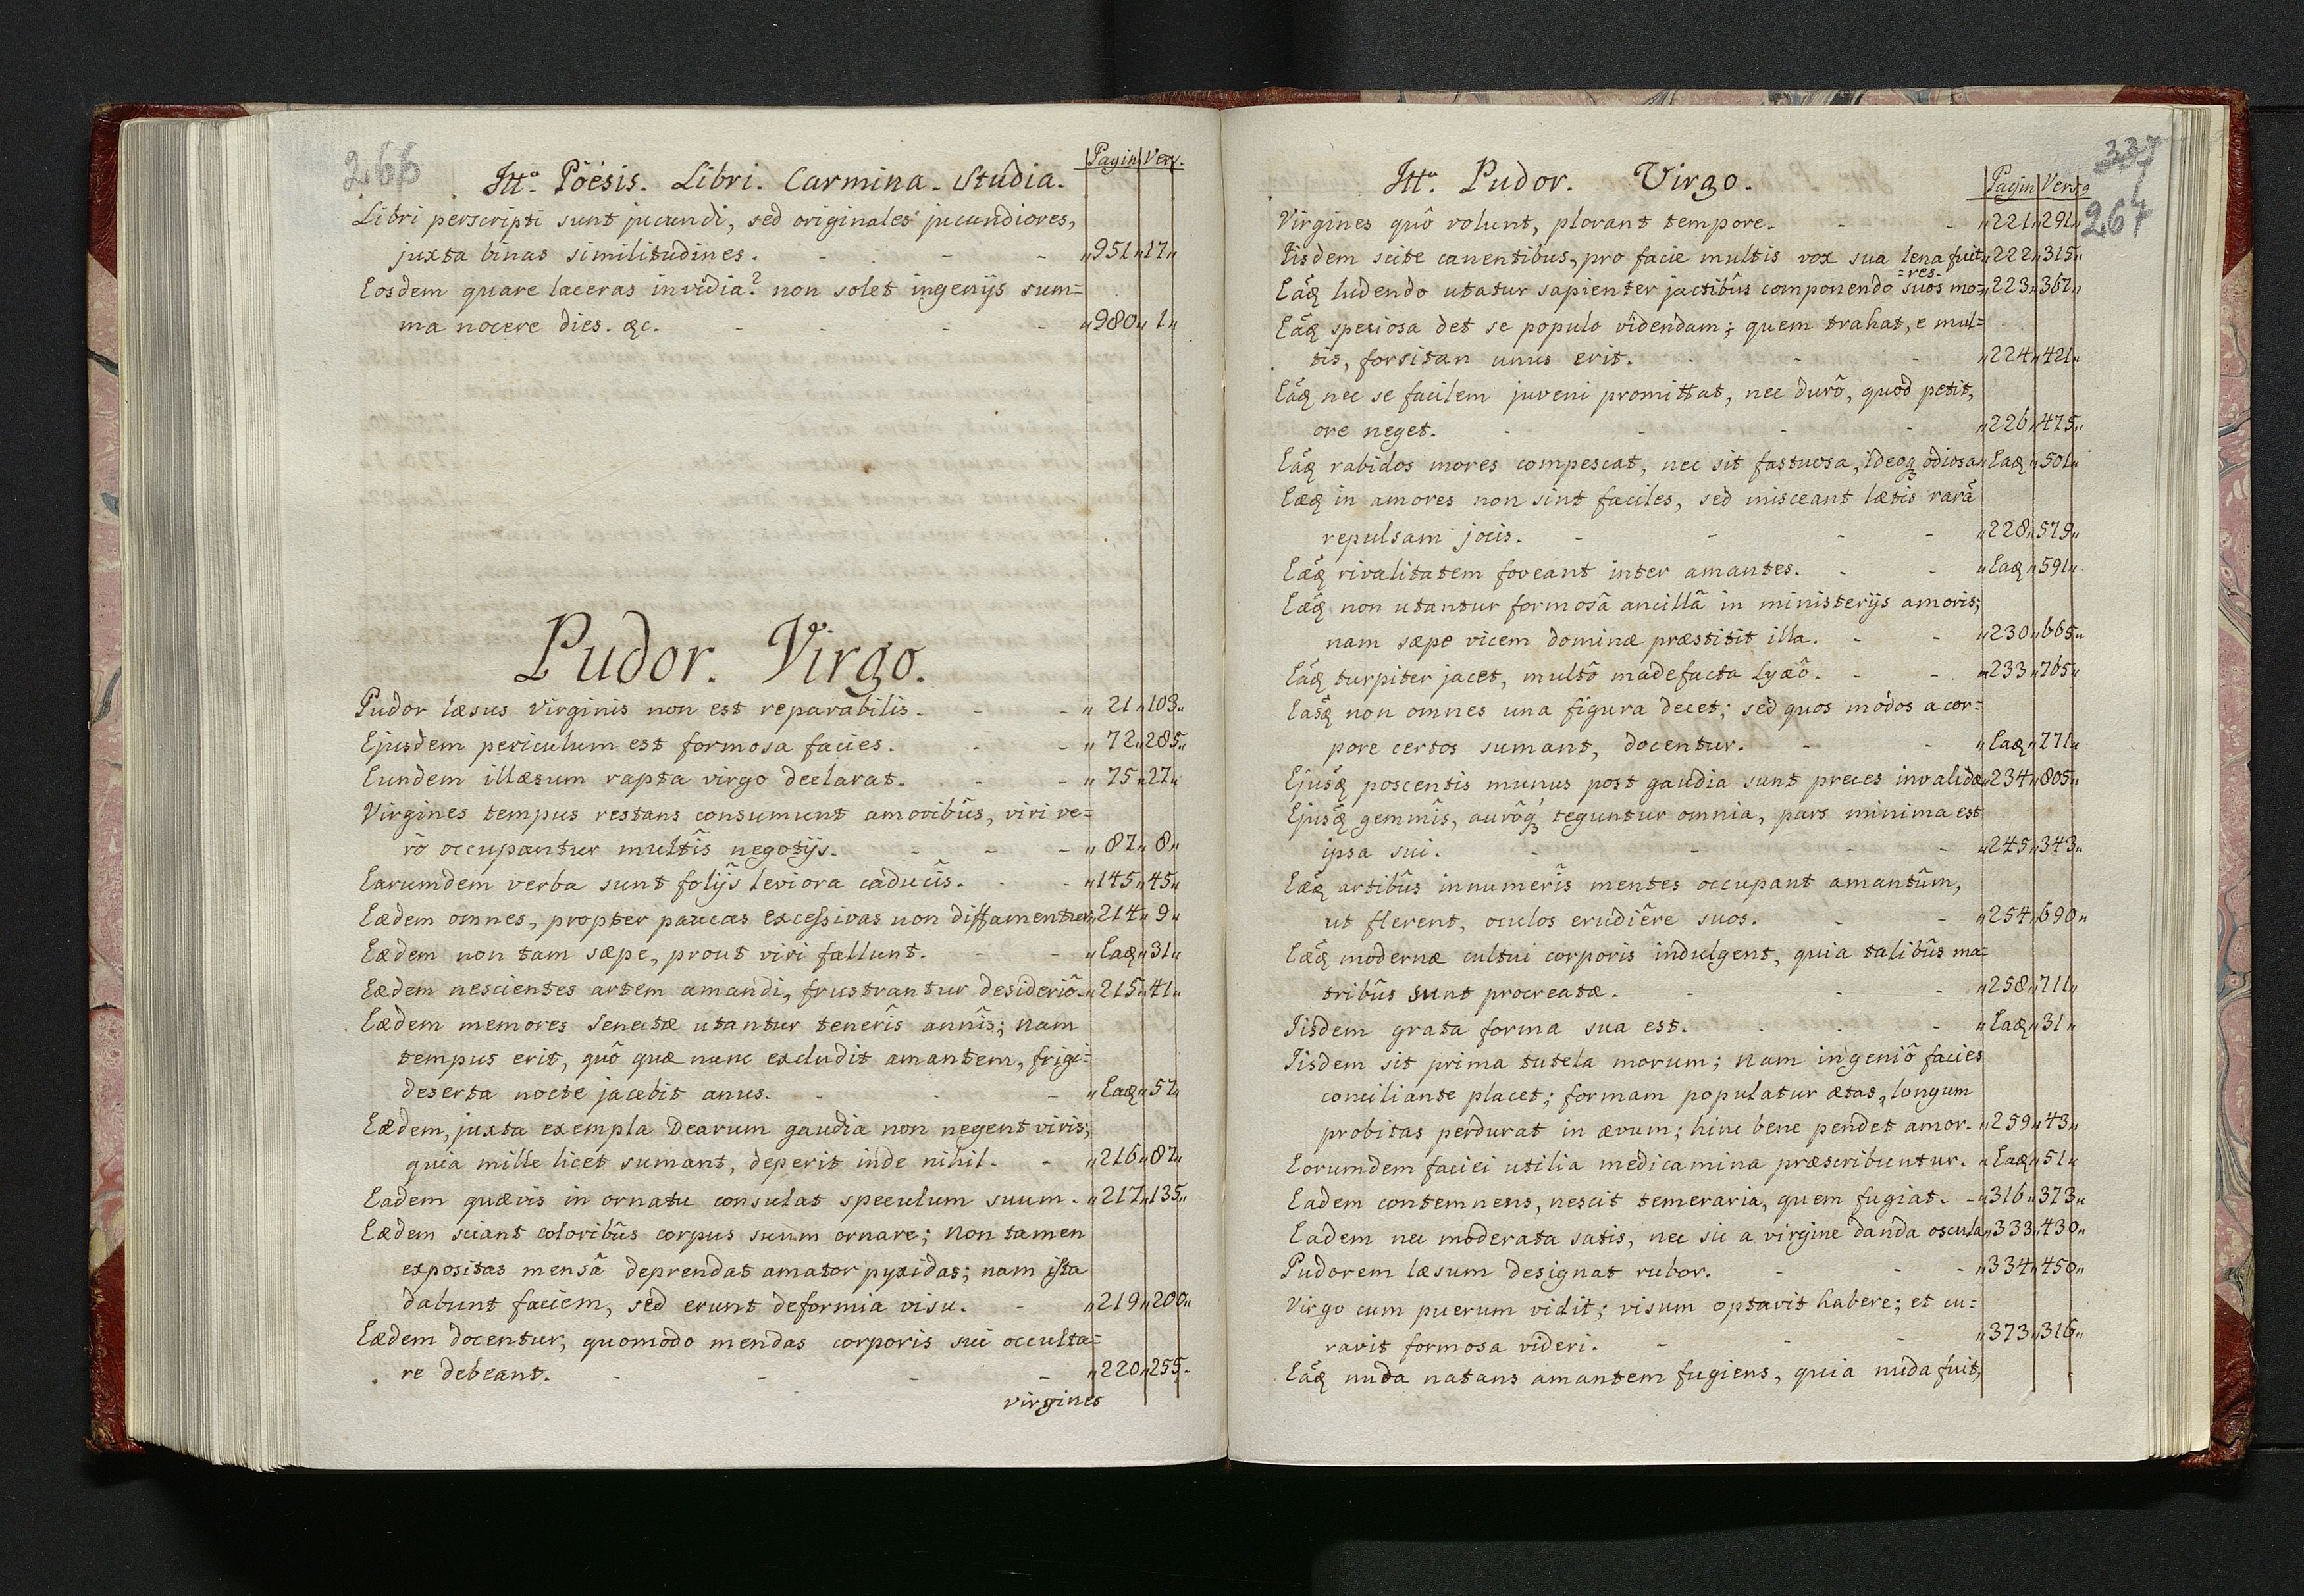 266
Itt°. Poësis. Libri. Carmina. Studia.
Pagin Vers.
Libri perscripti sunt jucundi, sed originales jucundiores,
juxta binas similitudines. - - - „951„17„
Eosdem quare laceras invidia? non solet ingenijs sum=
ma nocere dies. &c. - - - - „980„1„
Pudor. Virgo.
Pudor læsus Virginis non est reparabilis. - - „21„103„
Ejusdem periculum est formosa facies. - - „72„285„
Eundem illæsum rapta virgo declarat. - - „75„27„
Virgines tempus restans consumunt amoribûs, viri ve=
rò occupantur multîs negotijs. - - - „87„8„
Earumdem verba sunt folijs leviora caducîs. - - „145„45„
Eædem omnes, propter paucas excessivas non diffamentur„214„9„
Eædem non tam sæpe, prout viri fallunt. - - „Eaq„31„
Eædem nescientes artem amandi, frustrantur desideriô.„215„41„
Eædem memores Senectæ utantur tenerîs annîs; Nam
tempus erit, quô quæ nunc excludit amantem, frigi=
deserta nocte jacebit anus. - - - „Eaq„57„
Eædem, juxta exempla Dearum gaudia non negent viris;
quia mille licet sumant, deperit inde nihil. - „216„87„
Eadem quævis in ornatu consulat speculum suum. „217„135„
Eædem sciant coloribûs corpus suum ornare; Non tamen
expositas mensâ deprendat amator pyxidas; nam ista
dabunt faciem, sed erunt deformia visu. - „219„200„
Eædem docentur, quomodo mendas corporis sui occulta=
re debeant. - - - - „220„255.
virgines
337
267
Itt°. Pudor. Virgo.
Pagin Vers
Virgines quô volunt, plorant tempore. - - „221„291„
Iisdem scite canentibus, pro facie multis vox sua lena fuit„222„315„
=res.
Eaq ludendo utatur sapienter jactibûs componendo suos mo=„223„367„
Eaq speciosa det se populo videndam; quem trahat, e mul=
tis, forsitan unus erit. - - - „224„421„
Eaq nec se facilem juveni promittat, nec durô, quod petit,
ore neget. - - - - „226„475„
Eaq rabidos mores compescat, nec sit fastuosa, ideoq odiosa„Eaq„501„
Eæq in amores non sint faciles, sed misceant lætis rarâ
repulsam jocis. - - - - „228„579„
Eæq rivalitatem foveant inter amantes. - - „Eaq„591„
Eæq non utantur formosâ ancillâ in ministerijs amoris;
nam sæpe vicem dominæ præstitit illa. - - „230„665„
Eaq turpiter jacet, multô madefacta Lyæô. - - „233„765„
Easq non omnes una figura decet; sed quos modos a cor=
pore certos sumant, docentur. - - „Eaq„771„
Ejusq poscentis munus post gaudia sunt preces invalidæ„234„805„
Ejusq gemmîs, aurôq teguntur omnia, pars minima est
ipsa sui. - - - - „245„343„
Eæq artibûs innumerîs mentes occupant amantûm,
ut flerent, oculos erudiêre suos. - - „254„690„
Eæq modernæ cultui corporis indulgent, quia talibûs ma=
tribûs sunt procreatæ. - - - „258„711„
Iisdem grata forma sua est. - - - „Eaq„31„
Iisdem sit prima tutela morum; Nam ingeniô facies
conciliante placet; formam populatur ætas, longum
probitas perdurat in ævum; hinc bene pendet amor. „259„43„
Eorumdem faciei utilia medicamina præscribuntur. „Eaq„51„
Eadem contemnens, nescit temeraria, quem fugiat. -„316„373„
Eadem nec moderata satis, nec sic a virgine danda oscula„333„430„
Pudorem læsum designat rubor. - - - „334„450„
Virgo cum puerum vidit; visum optavit habere; et cu=
ravit formosa videri. - - - „373„316„
Eaq nuda natans amantem fugiens, quia nuda fuit,